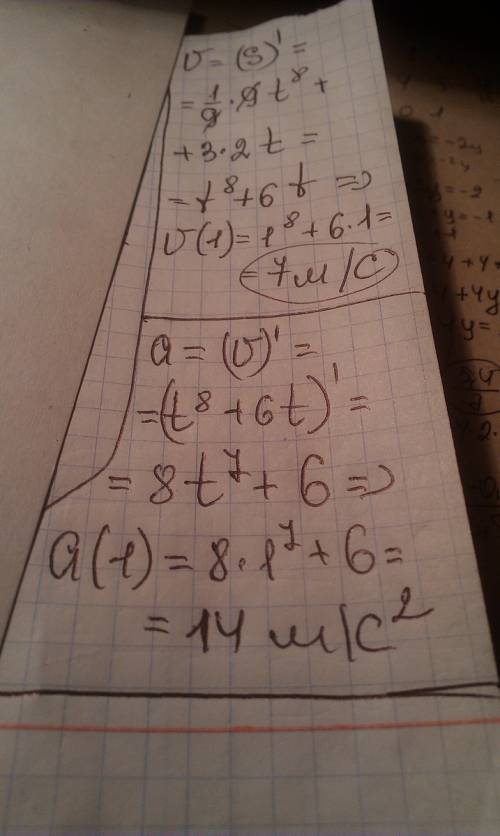 v = (S)' =
= 1/9 · 9 t⁸ +
+ 3·2 t =
= t⁸ + 6 t =>
v(1) = 1⁸ + 6·1 =
= 7 м/с
a = (v)' =
= (t⁸ + 6t)' =
= 8t⁷ + 6 =>
a(1) = 8·1⁷ + 6 =
= 14 м/с²